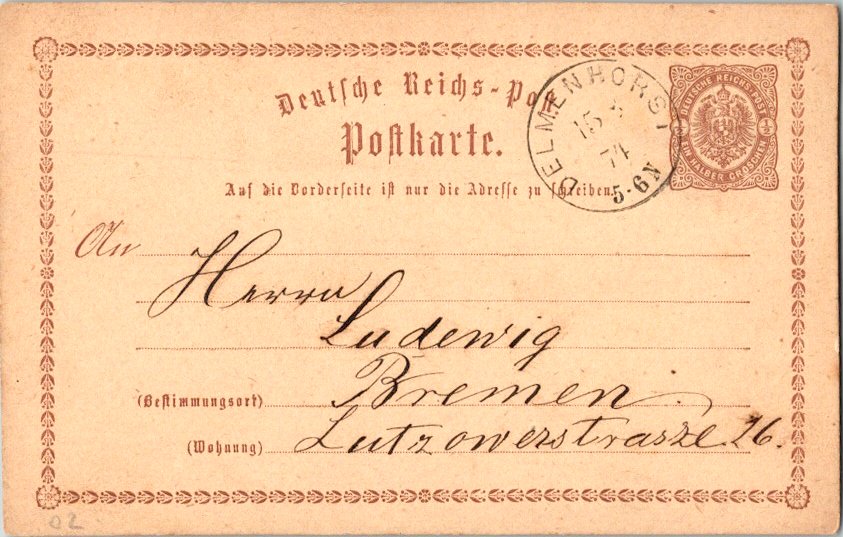 Deutsche Reichs-Post
Postkarte.
Auf die Vorderseite ist nur die Adresse zu schreiben.
DELMENHORST
15 5
74
5-6N
DEUTSCHE REICHS-POST
½ ½
EIN HALBER GROSCHEN
An
Herrn
Ludewig
(Bestimmungsort) Bremen
(Wohnung) Lutzowerstrasze 26.
02